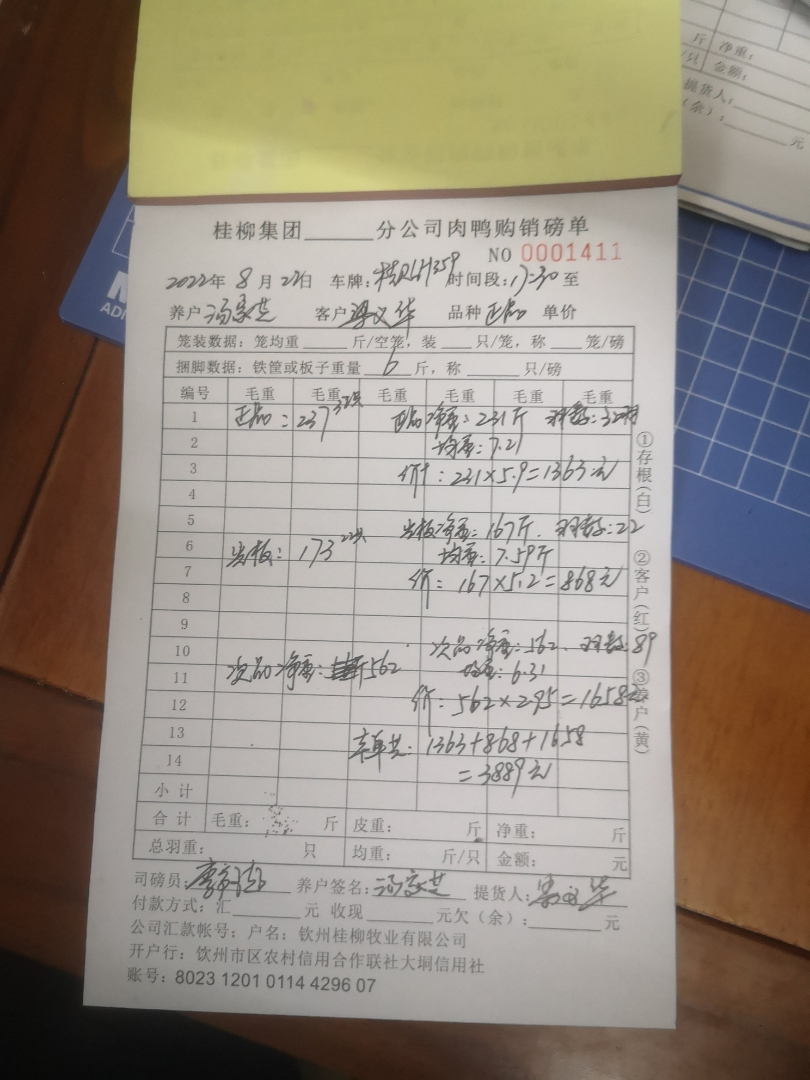 斤 净重:
/只 金额:
提货人:
(余): 元
桂柳集团 分公司肉鸭购销磅单
NO 0001411
2022年 8 月 27日 车牌: 时间段: 17:30 至
养户 客户 品种 正品 单价
笼装数据: 笼均重 斤/空笼, 装 只/笼, 称 笼/磅
捆脚数据: 铁筐或板子重量 6 斤, 称 只/磅
编号 毛重 毛重 毛重 毛重 毛重 毛重
1 正品: 237 32只 正品净重: 231斤 羽数: 32羽
2 均重: 7.21
3 价: 231×5.9=1363元
4
5 净重: 167斤. 羽数: 22
6 173 22只 均重: 7.59斤
7 价: 167×5.2=868元
8
9
10 次品净重: 562. 羽数: 89
11 次品净重: 562 均重: 6.31
12 价: 562×2.95=1658元
13 1363+868+1658
14 =3889元
小 计
合 计 毛重: 斤 皮重: 斤 净重: 斤
总羽重: 只 均重: 斤/只 金额: 元
司磅员: 养户签名: 提货人:
付款方式: 汇 元 收现 元欠(余): 元
公司汇款帐号: 户名: 钦州桂柳牧业有限公司
开户行: 钦州市区农村信用合作联社大垌信用社
账号: 8023 1201 0114 4296 07
①存根(白) ②客户(红) ③养户(黄)